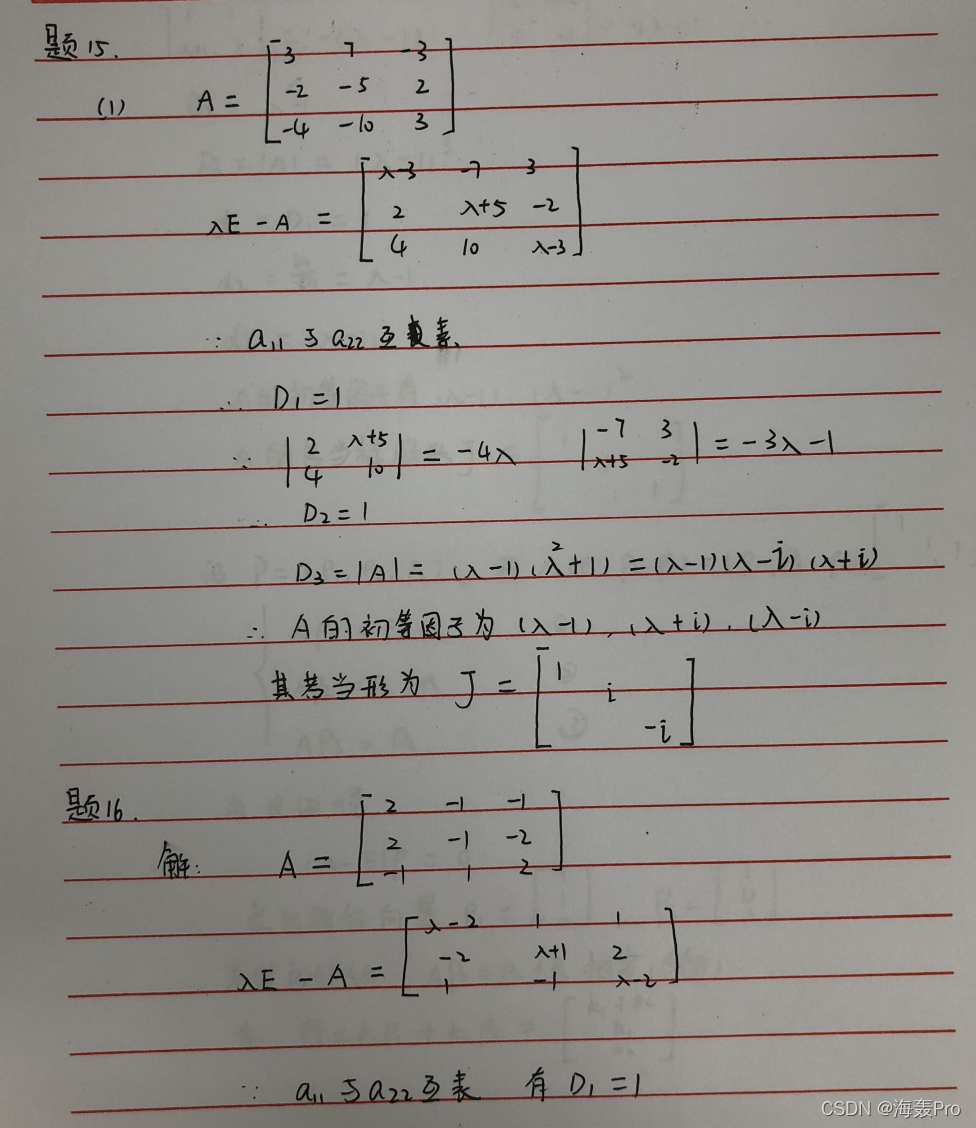 题15.
(1) A = [3 7 -3
-2 -5 2
-4 -10 3]
λE - A = [λ-3 -7 3
2 λ+5 -2
4 10 λ-3]
∵ a₁₁与a₂₂互素,
∴ D₁=1
∵ |2 λ+5; 4 10| = -4λ |-7 3; λ+5 -2| = -3λ-1
∴ D₂=1
D₃=|A|= (λ-1)(λ²+1) =(λ-1)(λ-i)(λ+i)
∴ A的初等因子为 (λ-1), (λ+i), (λ-i)
其若当形为 J = [1
i
-i]
题16.
解: A = [2 -1 -1
2 -1 -2
-1 1 2]
λE - A = [λ-2 1 1
-2 λ+1 2
1 -1 λ-2]
∵ a₁₁与a₂₂互素 有 D₁=1
CSDN @海轰Pro